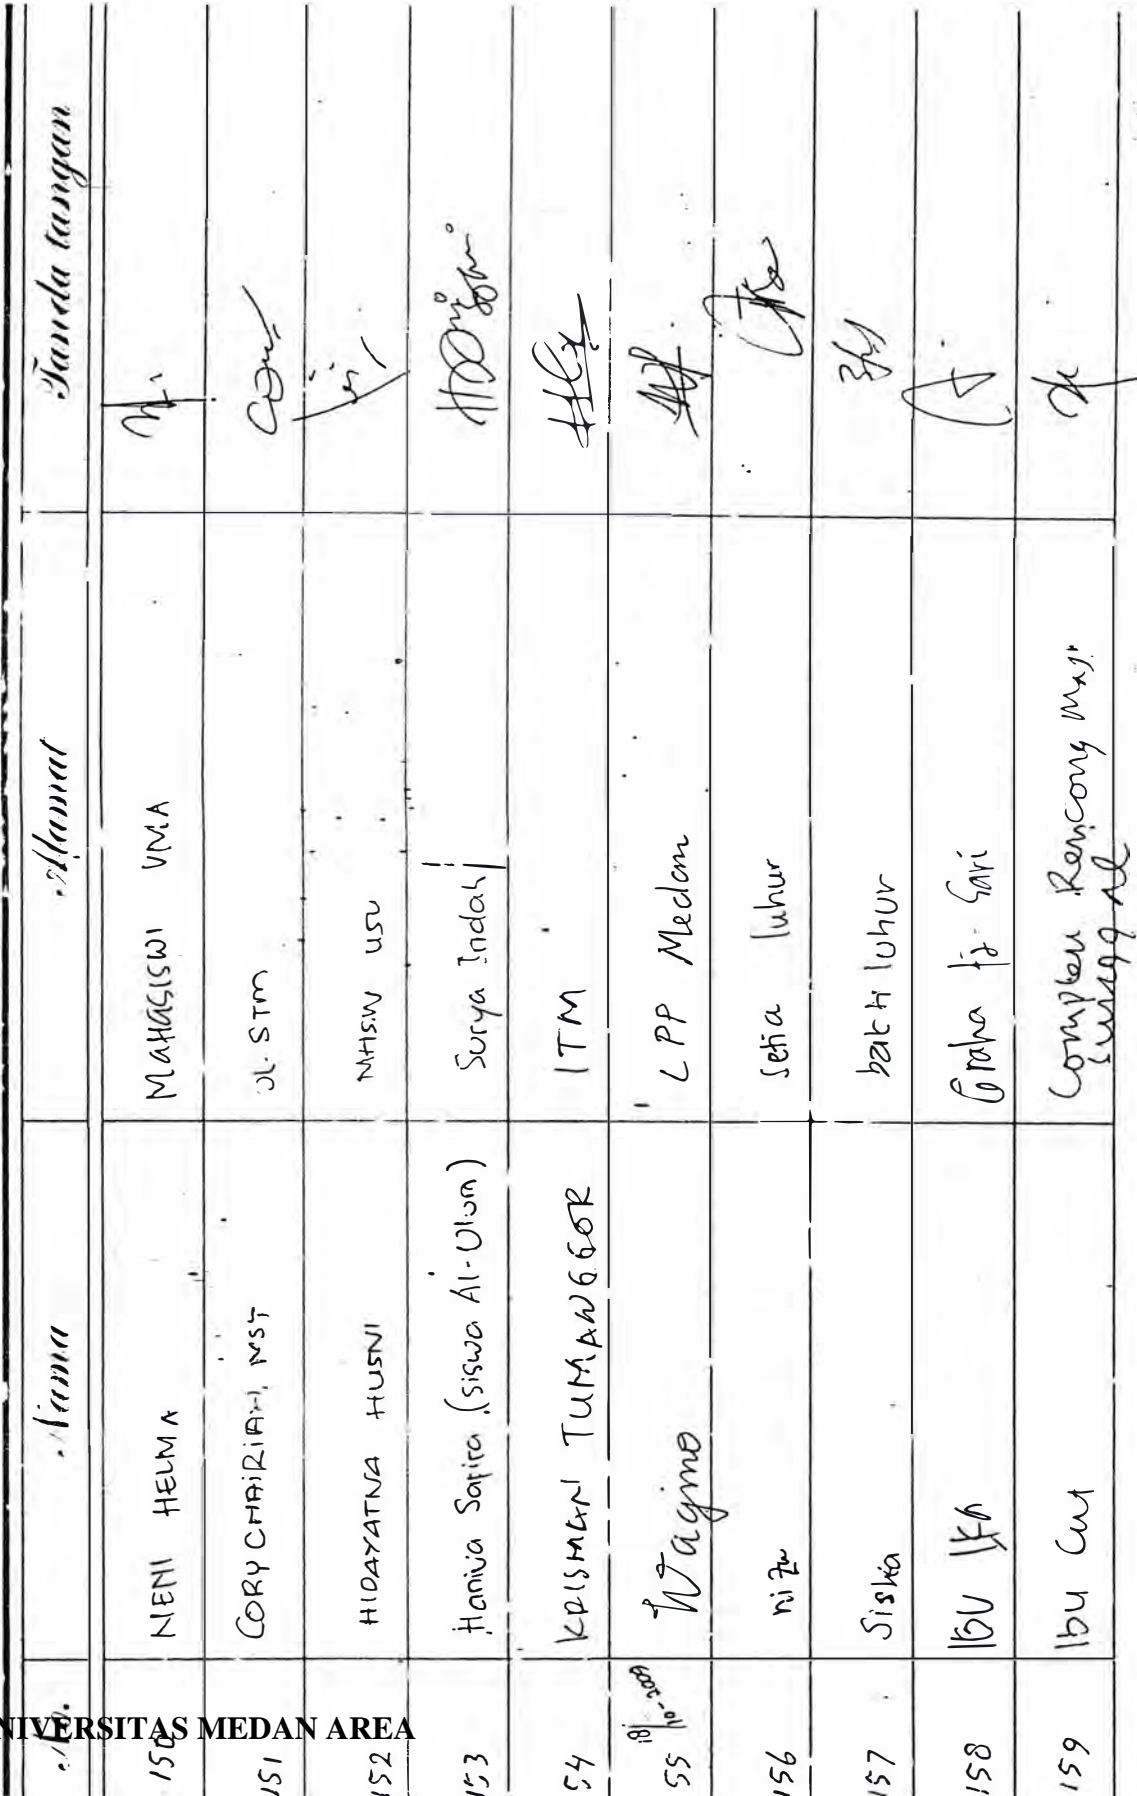 No. Nama Alamat Tanda tangan
150 NENI HELMA MAHASISWI UMA
151 CORY CHAIRIAH, NST Jl. STM
152 HIDAYATNA HUSNI MHSW USU
153 Haniva Sapira (Siswa Al-Ulum) Surya Indah
54 KRISMAN TUMANGGOR ITM
55 18/10-2009 Wagino LPP Medan
156 setia luhur
157 Siska bakti luhur
158 IBU Graha tj. Sari
159 Ibu Cut Complex Rencong Mas
UNIVERSITAS MEDAN AREA